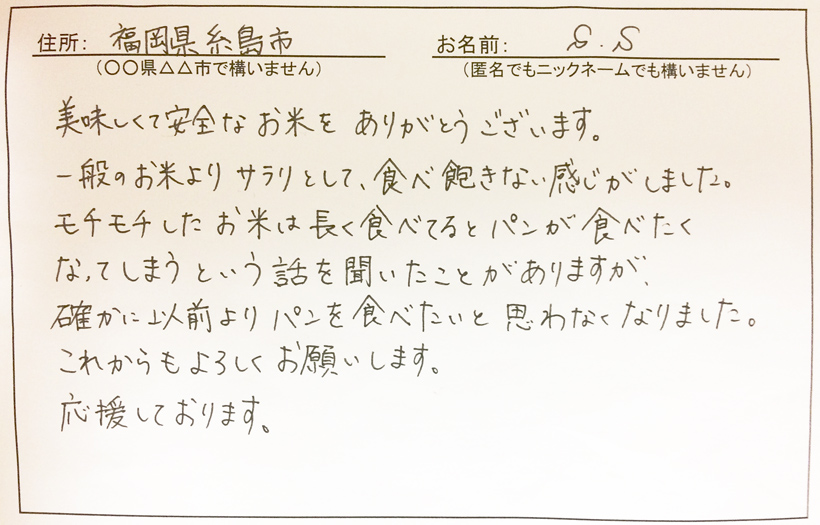 住所: 福岡県糸島市 お名前: S.S
(〇〇県△△市で構いません) (匿名でもニックネームでも構いません)
美味しくて安全なお米を ありがとうございます。
一般のお米より サラリとして、食べ飽きない感じがしました。
モチモチしたお米は長く食べてると パンが食べたく
なってしまうという話を聞いたことがありますが、
確かに以前よりパンを食べたいと思わなくなりました。
これからもよろしくお願いします。
応援しております。